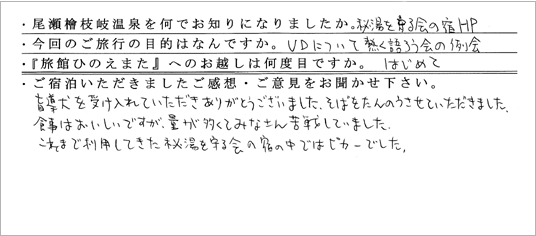 ・尾瀬檜枝岐温泉を何でお知りになりましたか。秘湯を守る会の宿HP
・今回のご旅行の目的はなんですか。 UDについて熱く語ろう会の例会
・『旅館ひのえまた』へのお越しは何度目ですか。 はじめて
・ご宿泊いただきましたご感想・ご意見をお聞かせ下さい。
盲導犬を受け入れていただきありがとうございました。そばをたんのうさせていただきました。
食事はおいしいですが、量が多くてみなさん苦戦していました。
これまで利用してきた秘湯を守る会の宿の中ではピカ一でした。